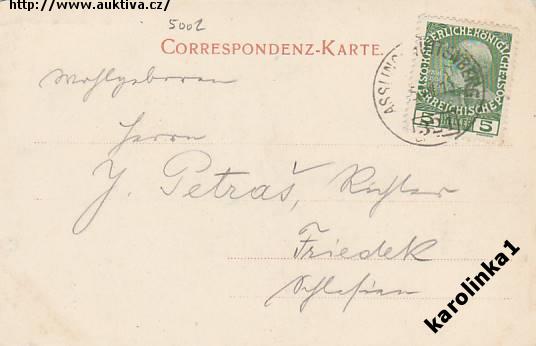 http://www.auktiva.cz/
5002
CORRESPONDENZ-KARTE.
Wohlgeboren
Herrn
J. Petraš, Richter
Friedek
Schlesien
ASSLING
KAISERLICHE KÖNIGLICHE
ÖSTERREICHISCHE POST
5 5
karolinka1